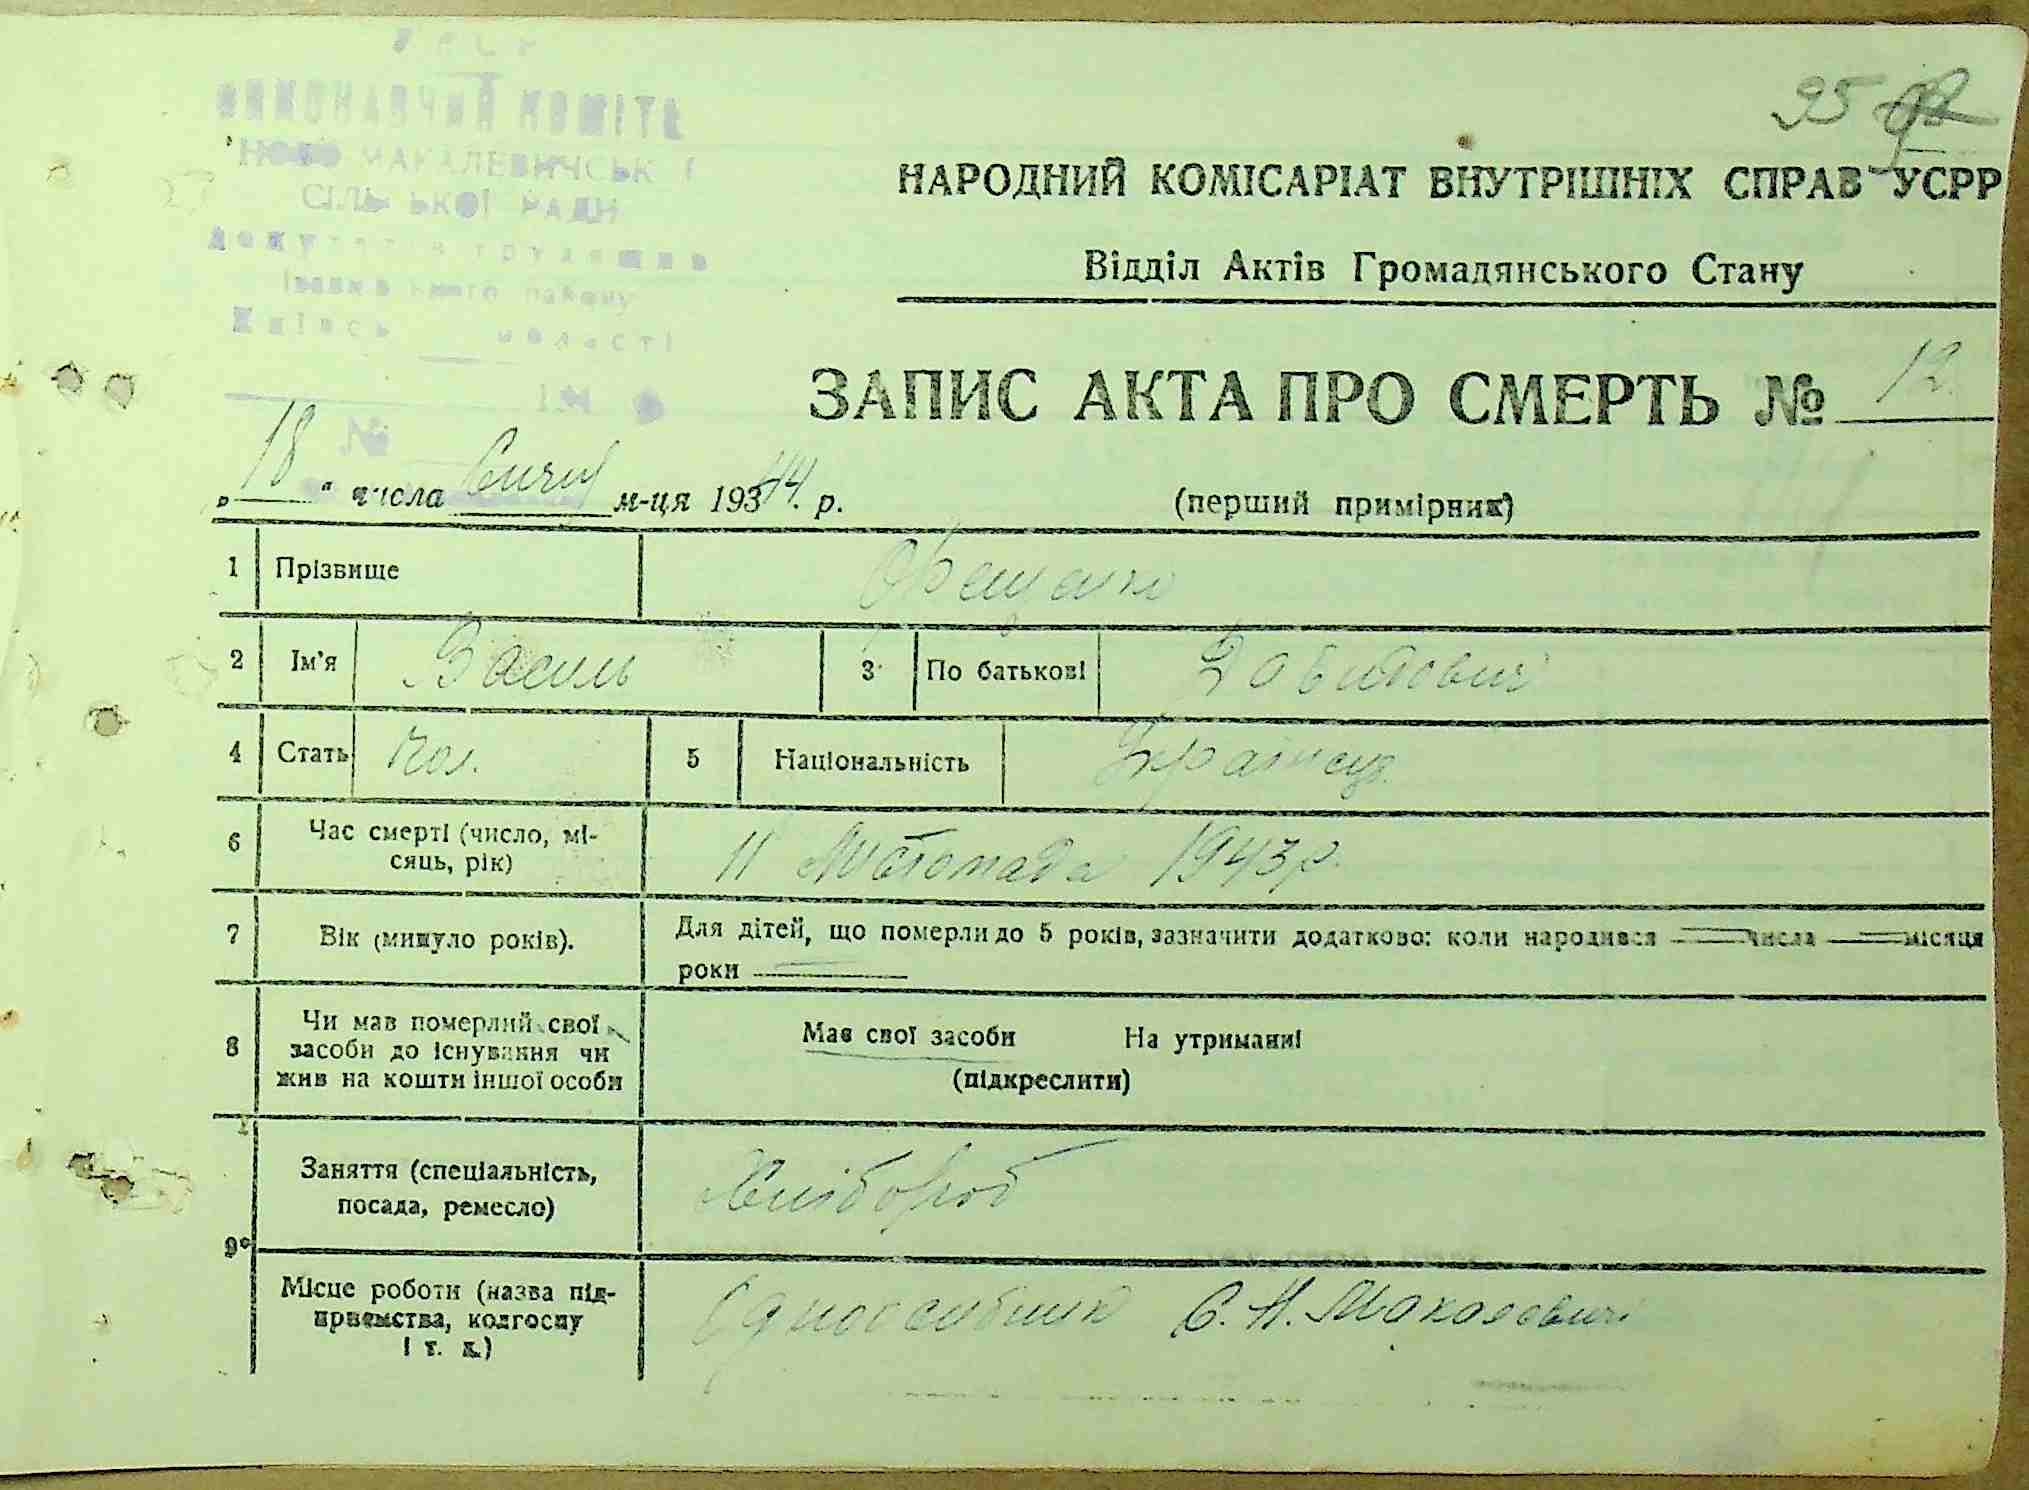 УРСР
ВИКОНАВЧИЙ КОМІТЕ
НОВО МАКАЛЕВИЧСЬК І
СІЛЬСЬКОЇ РАДИ
депутатів трудящих
Іванківського району
Київсь області
194
№
95
НАРОДНИЙ КОМІСАРІАТ ВНУТРІШНІХ СПРАВ УСРР
Відділ Актів Громадянського Стану
ЗАПИС АКТА ПРО СМЕРТЬ № 12
„ 18 “ числа Січня м-ця 1944. р.
(перший примірник)
1 Прізвище
2 Ім’я Василь 3 По батькові Давидович
4 Стать Чол. 5 Національність Українець
6 Час смерті (число, мі-
сяць, рік) 11 Листопада 1943 р.
7 Вік (минуло років). Для дітей, що померли до 5 років, зазначити додатково: коли народився числа місяця
роки
8 Чи мав померлий свої
засоби до існування чи
жив на кошти іншої особи
Мав свої засоби На утриманні
(підкреслити)
9 Заняття (спеціальність,
посада, ремесло) Хлібороб
Місце роботи (назва під-
приємства, колгоспу
і т. д.) Одноосібник С. Н. Макалевичі